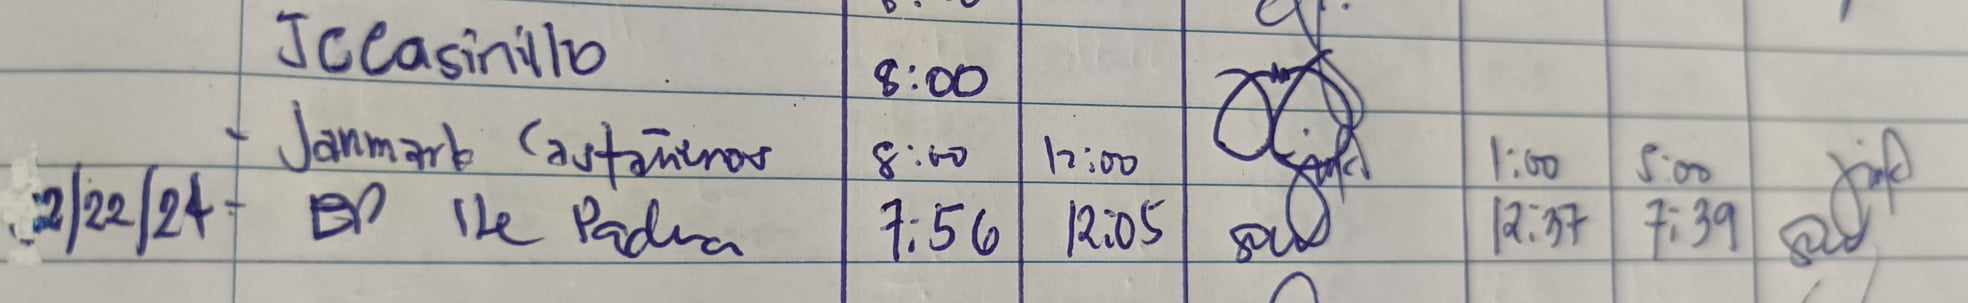 JC Casinillo 8:00
- Janmark Castañeros 8:00 12:00 1:00 5:00
2/22/24 - Padua 7:56 12:05 12:37 7:39